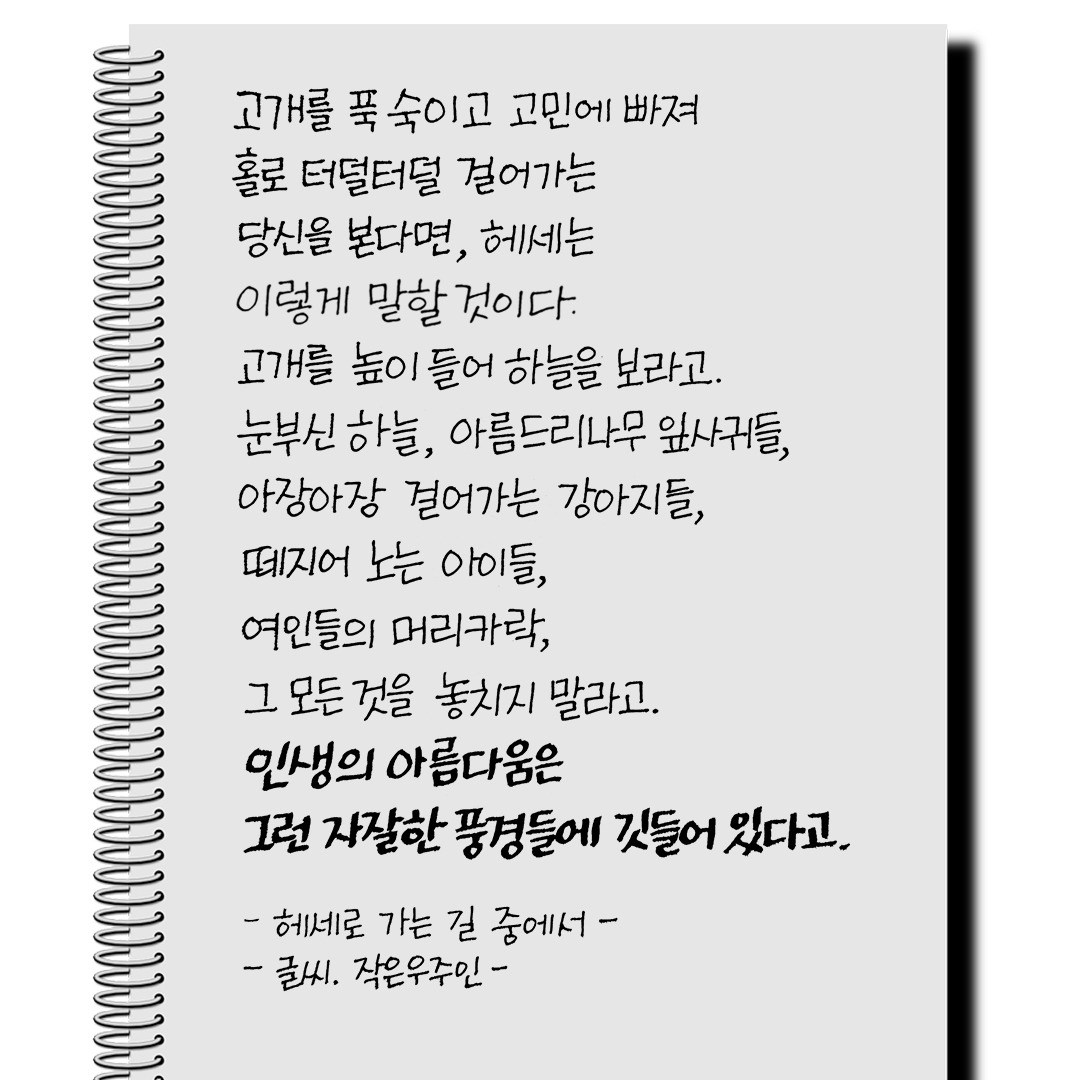 고개를 푹 숙이고 고민에 빠져
홀로 터덜터덜 걸어가는
당신을 본다면, 헤세는
이렇게 말할 것이다.
고개를 높이 들어 하늘을 보라고.
눈부신 하늘, 아름드리나무 잎사귀들,
아장아장 걸어가는 강아지들,
떼지어 노는 아이들,
여인들의 머리카락,
그 모든 것을 놓치지 말라고.
인생의 아름다움은
그런 자잘한 풍경들에 깃들어 있다고.
- 헤세로 가는 길 중에서 -
- 글씨. 작은우주인 -